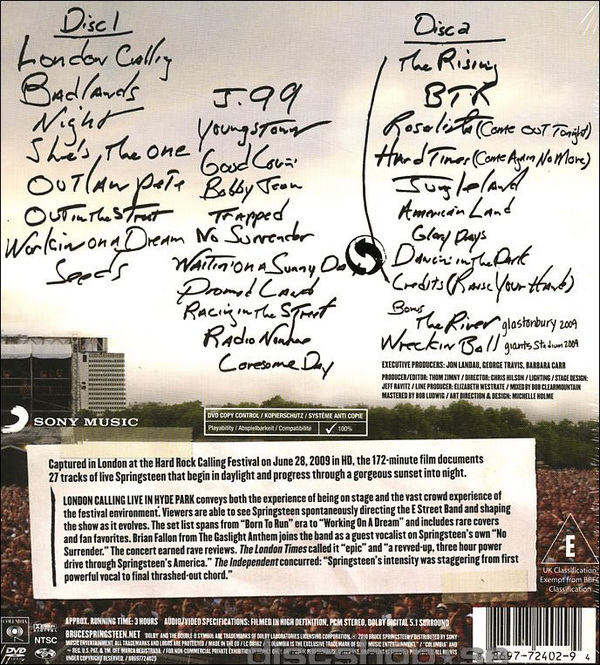 Disc1
London Calling
Badlands
Night
She's The One
OUTLAW Pete
OUT in the Street
Workin on a Dream
Seeds
J.99
Youngstown
Good Lovin'
Bobby Jean
Trapped
No Surrender
Waitin' on a Sunny Day
Promised Land
Racing in the Street
Radio Nowhere
Lonesome Day
Disc2
The Rising
BTR
Rosalita (Come OUT Tonight)
Hard Times (Come Again No More)
Jungleland
American Land
Glory Days
Dancin in the Dark
Credits (Raise Your Hand)
Bonus
The River glastonbury 2009
Wreckin Ball giants stadium 2009
EXECUTIVE PRODUCERS: JON LANDAU, GEORGE TRAVIS, BARBARA CARR
PRODUCER/EDITOR: THOM ZIMNY / DIRECTOR: CHRIS HILSON / LIGHTING / STAGE DESIGN:
JEFF RAVITZ / LINE PRODUCER: ELIZABETH WESTRATE / MIXED BY BOB CLEARMOUNTAIN
MASTERED BY BOB LUDWIG / ART DIRECTION & DESIGN: MICHELLE HOLME
SONY MUSIC
DVD COPY CONTROL / KOPIERSCHUTZ / SYSTÈME ANTI COPIE
Playability / Abspielbarkeit / Compatibilité ✓ 100%
Captured in London at the Hard Rock Calling Festival on June 28, 2009 in HD, the 172-minute film documents
27 tracks of live Springsteen that begin in daylight and progress through a gorgeous sunset into night.
LONDON CALLING LIVE IN HYDE PARK conveys both the experience of being on stage and the vast crowd experience of
the festival environment. Viewers are able to see Springsteen spontaneously directing the E Street Band and shaping
the show as it evolves. The set list spans from "Born To Run" era to "Working On A Dream" and includes rare covers
and fan favorites. Brian Fallon from The Gaslight Anthem joins the band as a guest vocalist on Springsteen's own "No
Surrender." The concert earned rave reviews. The London Times called it "epic" and "a revved-up, three hour power
drive through Springsteen's America." The Independent concurred: "Springsteen's intensity was staggering from first
powerful vocal to final thrashed-out chord."
E
UK Classification
Exempt from BBFC
Classification
COLUMBIA
DVD
VIDEO
DOLBY
DIGITAL
NTSC
APPROX. RUNNING TIME: 3 HOURS AUDIO/VIDEO SPECIFICATIONS: FILMED IN HIGH DEFINITION, PCM STEREO, DOLBY DIGITAL 5.1 SURROUND
BRUCESPRINGSTEEN.NET
8697-72402-9 4